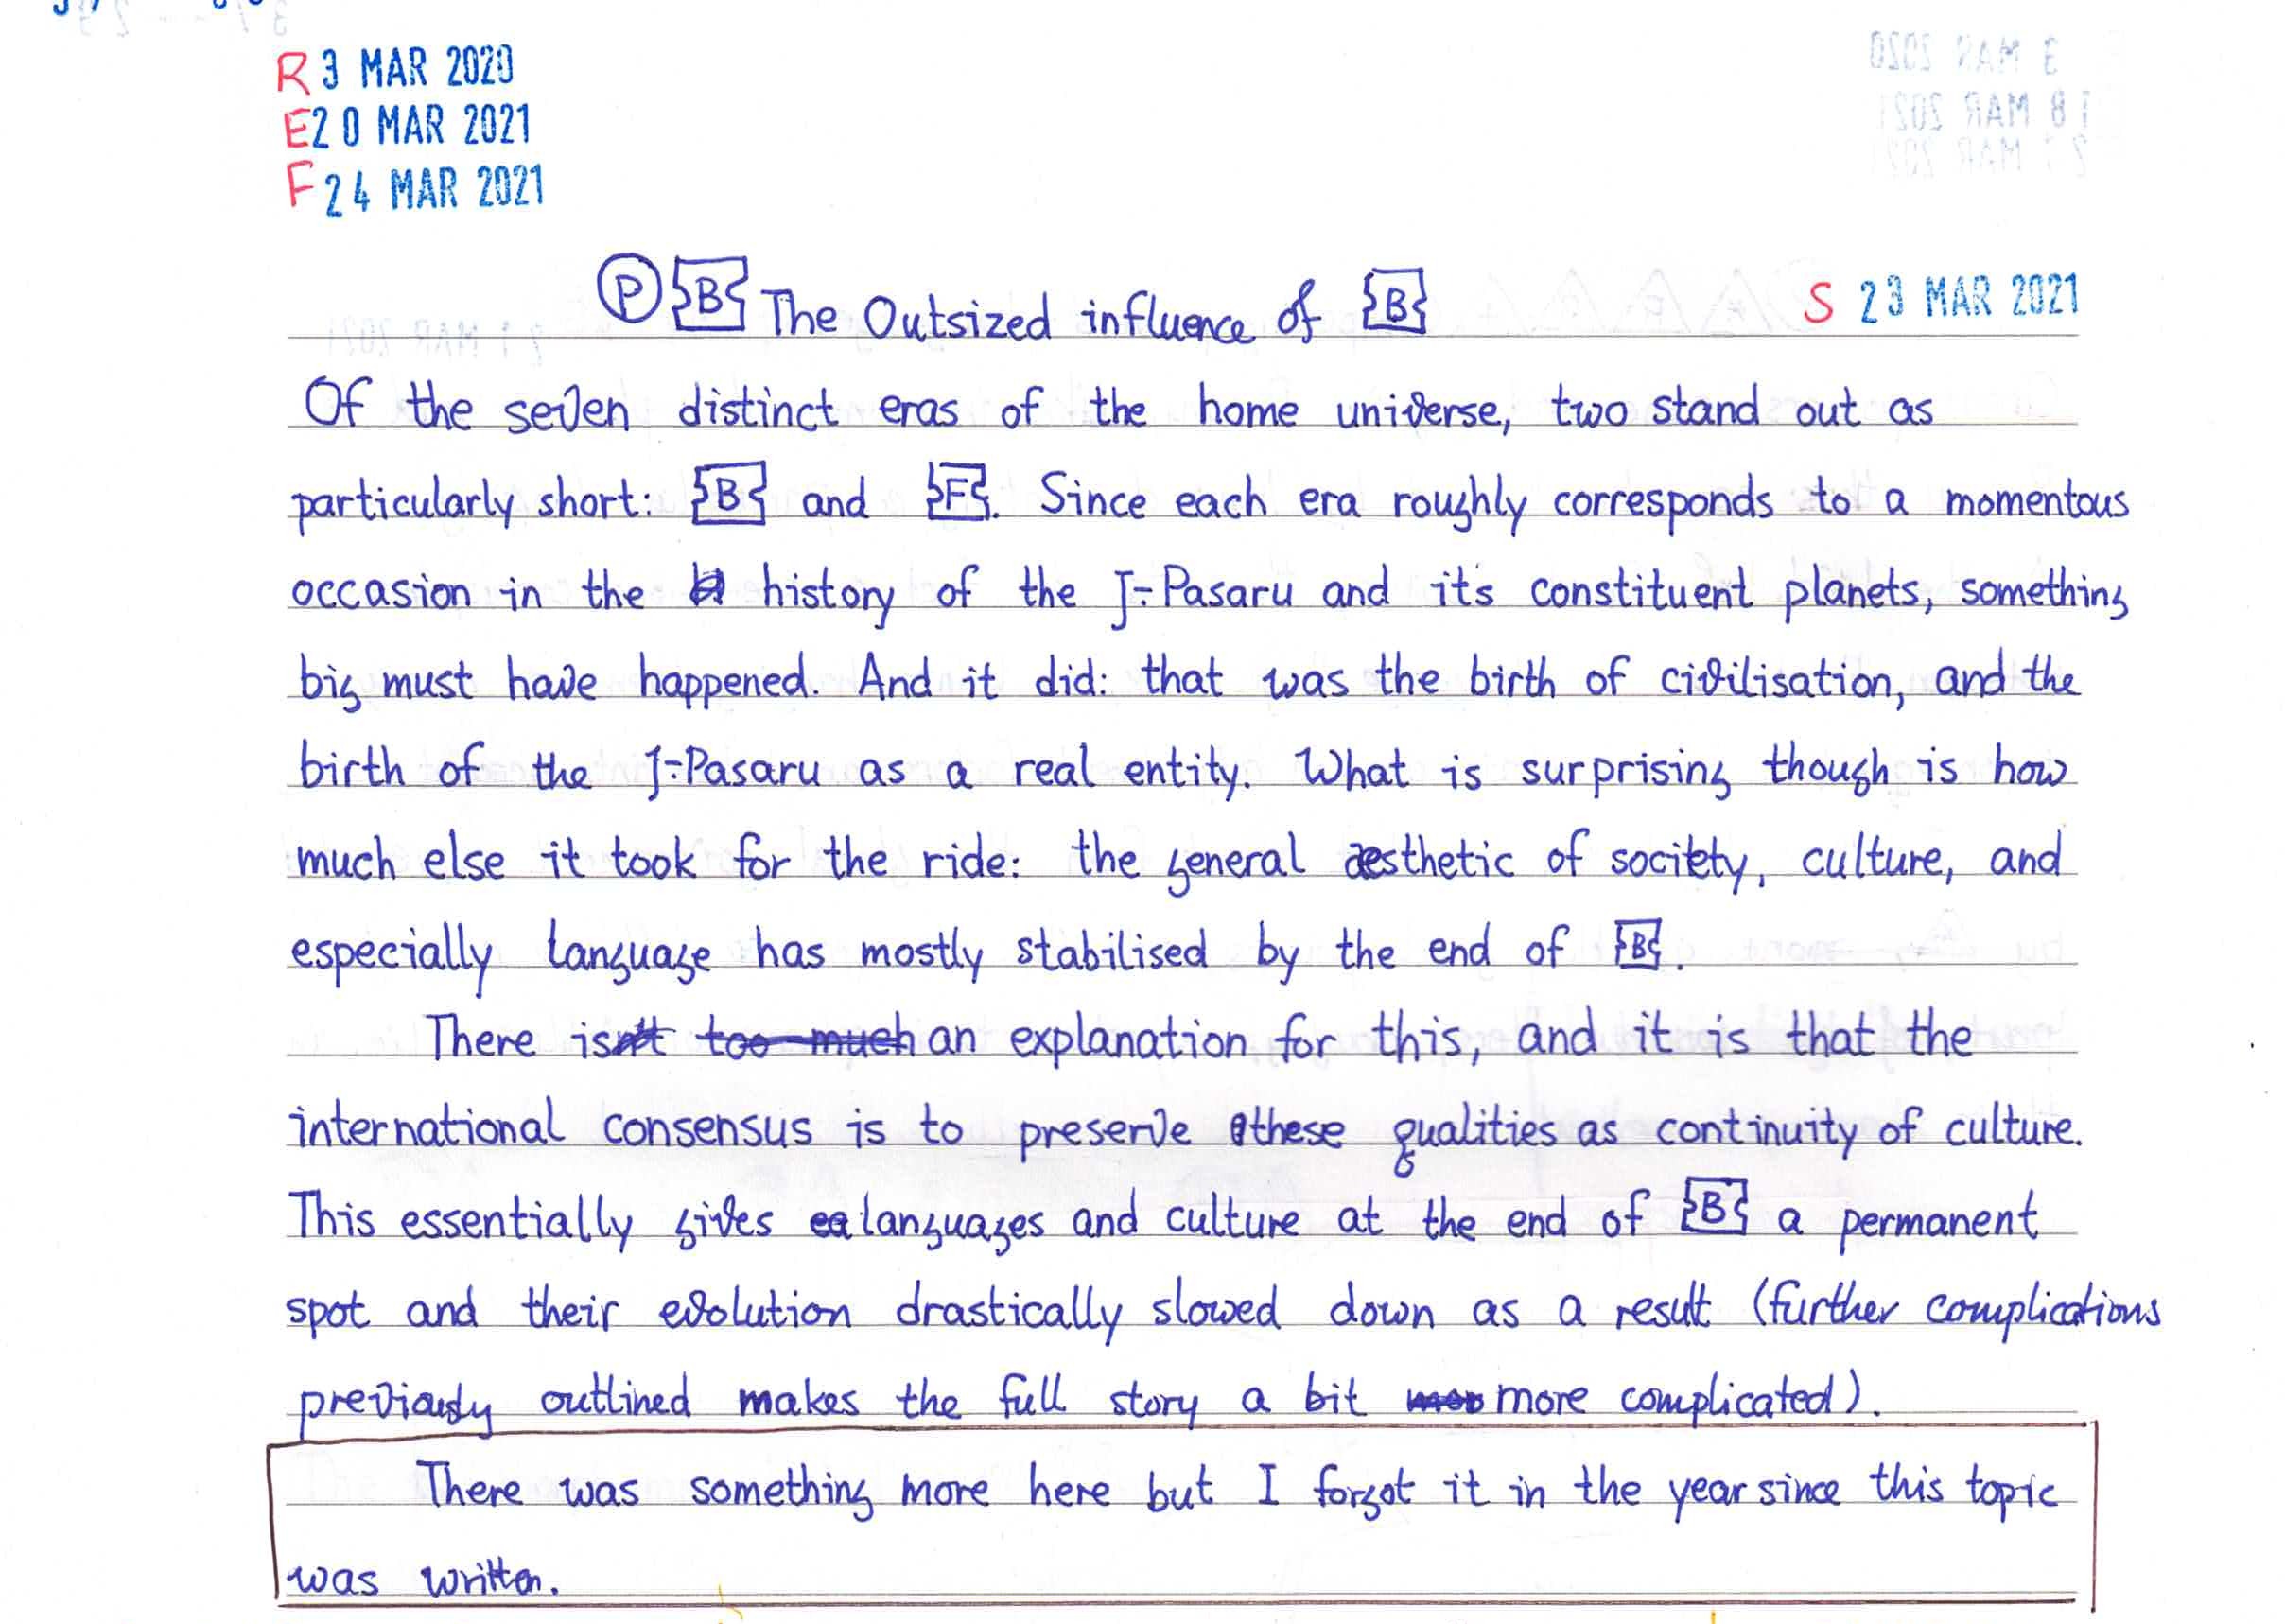 R 3 MAR 2020
E 20 MAR 2021
F 24 MAR 2021
P B The Outsized influence of B
S 23 MAR 2021
Of the seven distinct eras of the home universe, two stand out as
particularly short: B and F. Since each era roughly corresponds to a momentous
occasion in the history of the J÷Pasaru and its constituent planets, something
big must have happened. And it did: that was the birth of civilisation, and the
birth of the J÷Pasaru as a real entity. What is surprising though is how
much else it took for the ride: the general aesthetic of society, culture, and
especially language has mostly stabilised by the end of B.
There isn't too much an explanation for this, and it is that the
international consensus is to preserve these qualities as continuity of culture.
This essentially gives languages and culture at the end of B a permanent
spot and their evolution drastically slowed down as a result (further complications
previously outlined makes the full story a bit more complicated).
There was something more here but I forgot it in the year since this topic
was written.